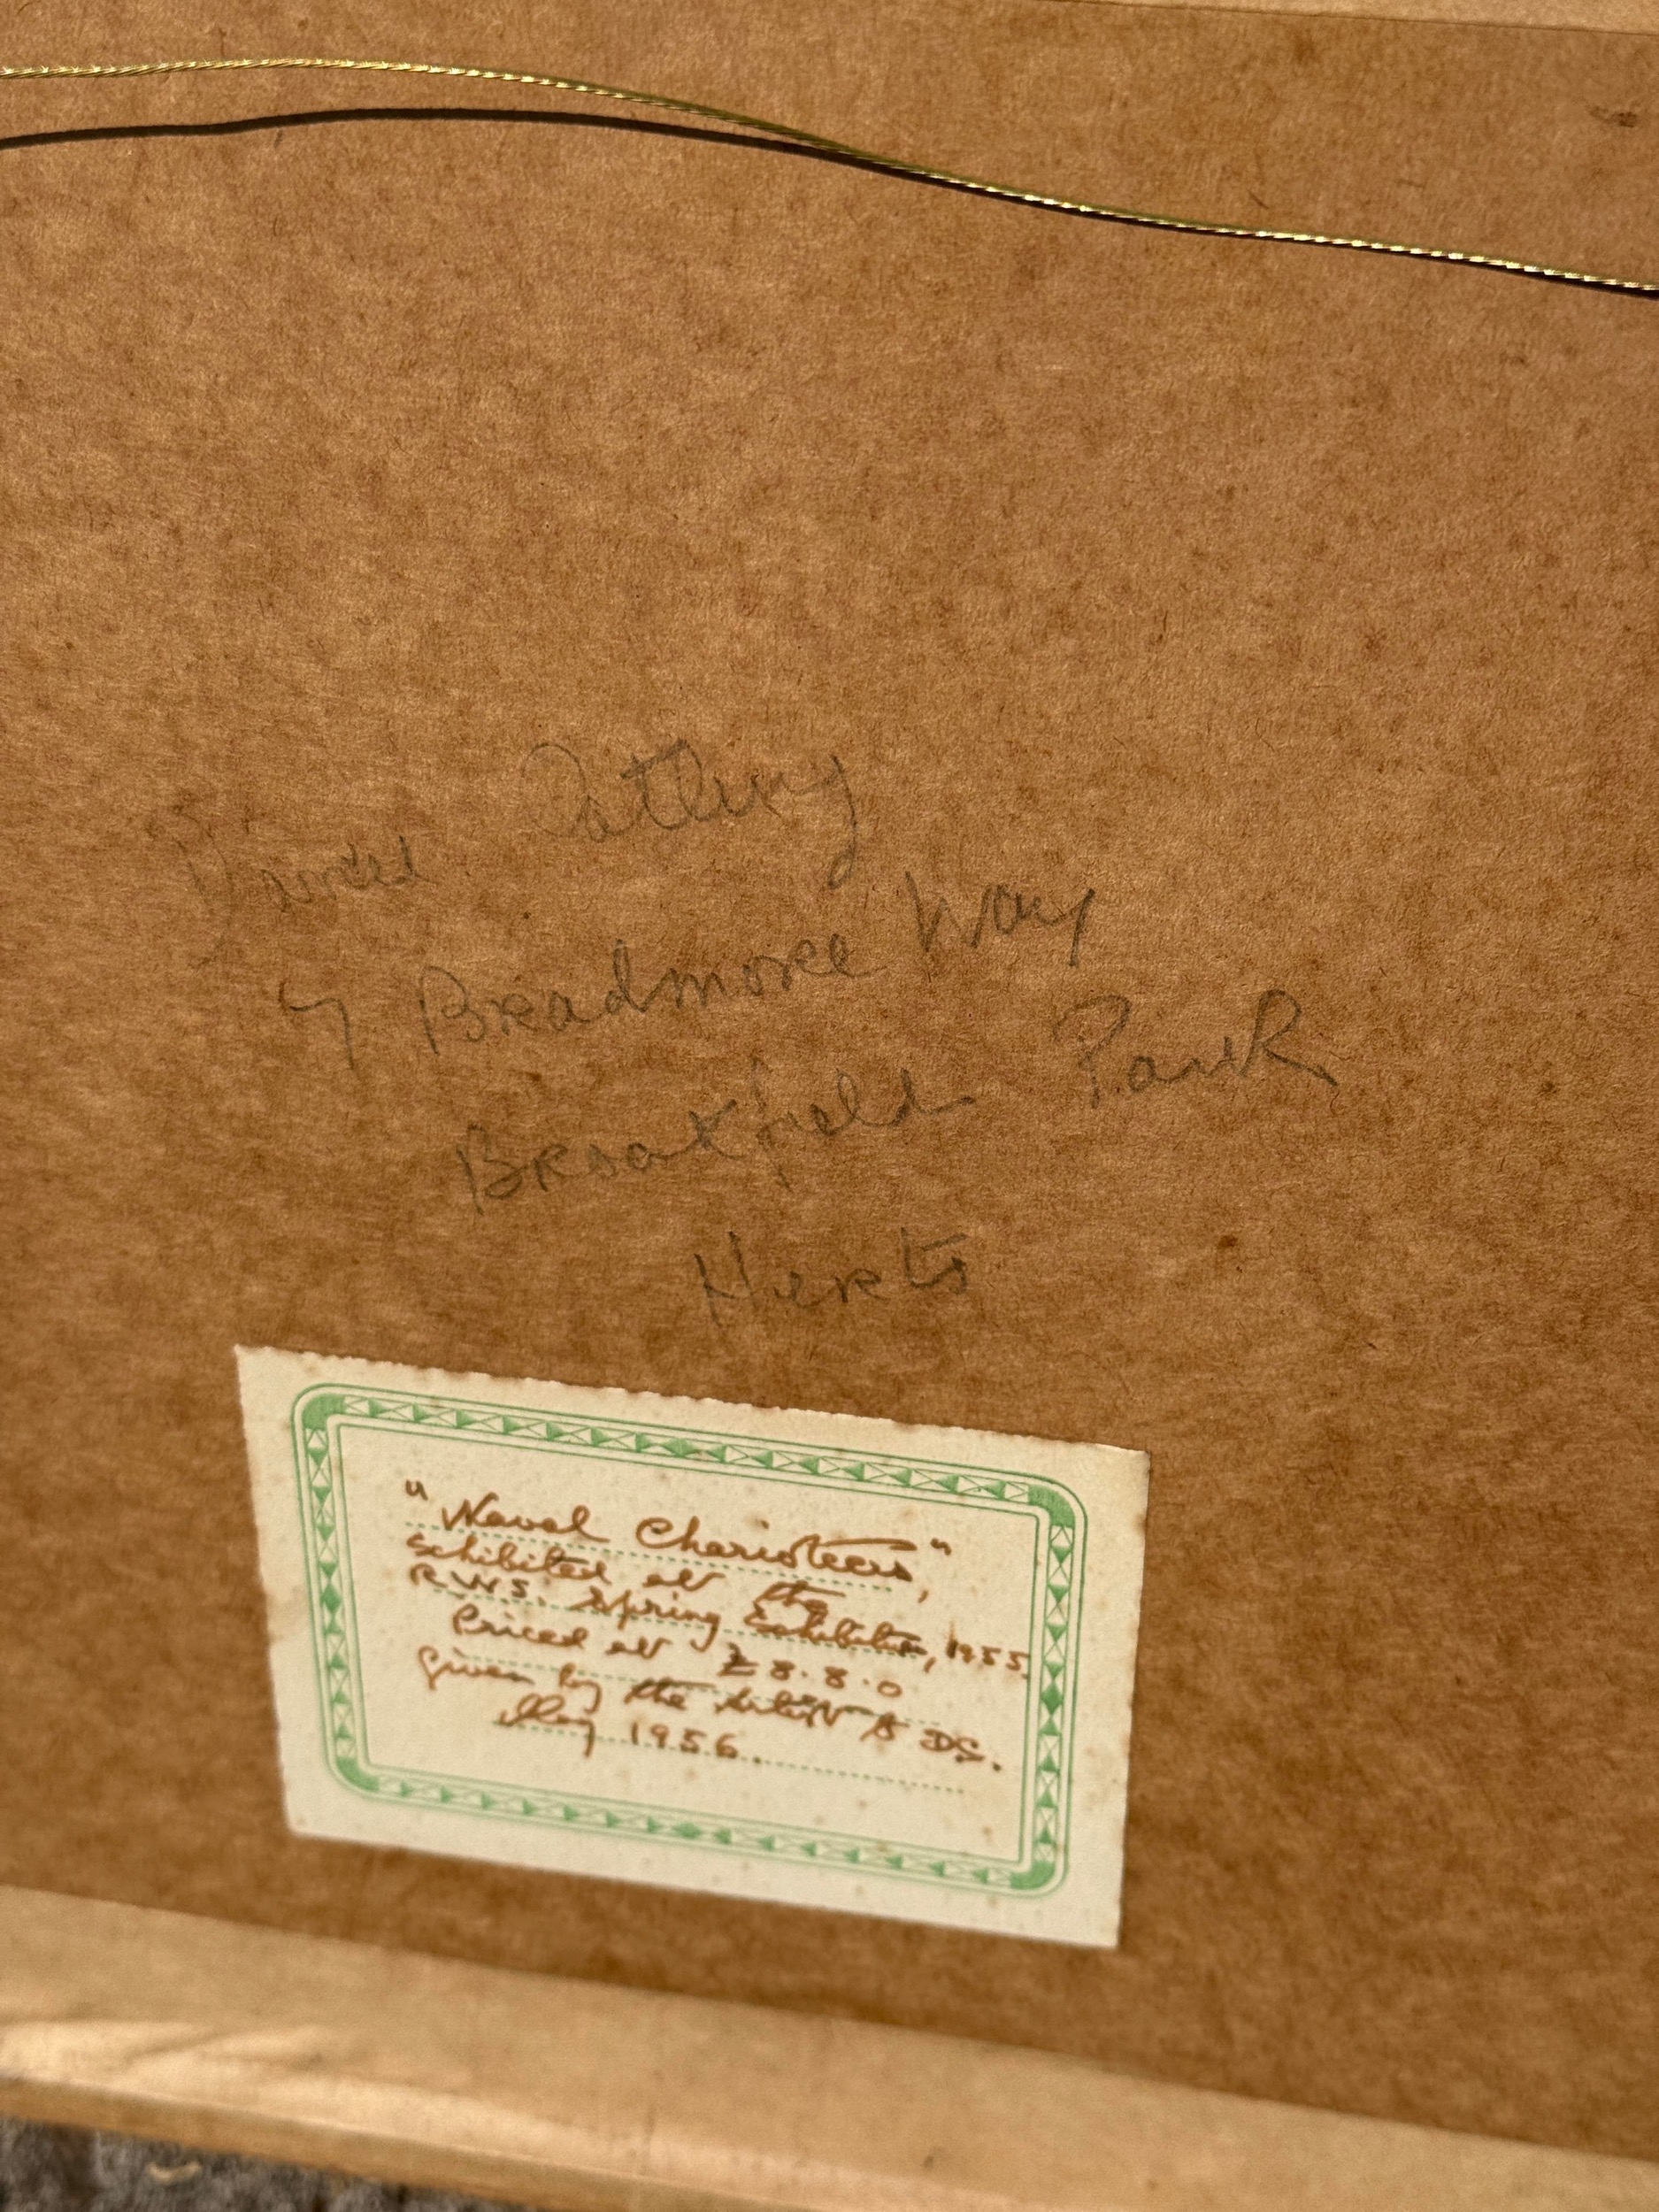 David Catling
7 Bradmore Way
Brookfield Park
Herts
"Naval Charioteers,"
Exhibited at the
R.W.S. Spring Exhibition, 1955.
Priced at £8.8.0
Given by the Artist to DS.
May 1956.